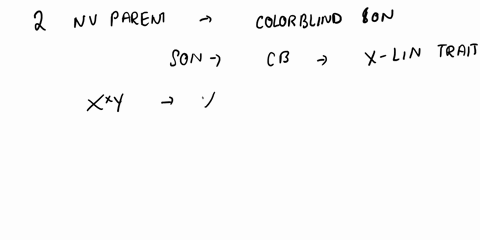 2 NV PARENT → COLORBLIND SON
SON → CB → X-LIN TRAIT
XˣY →